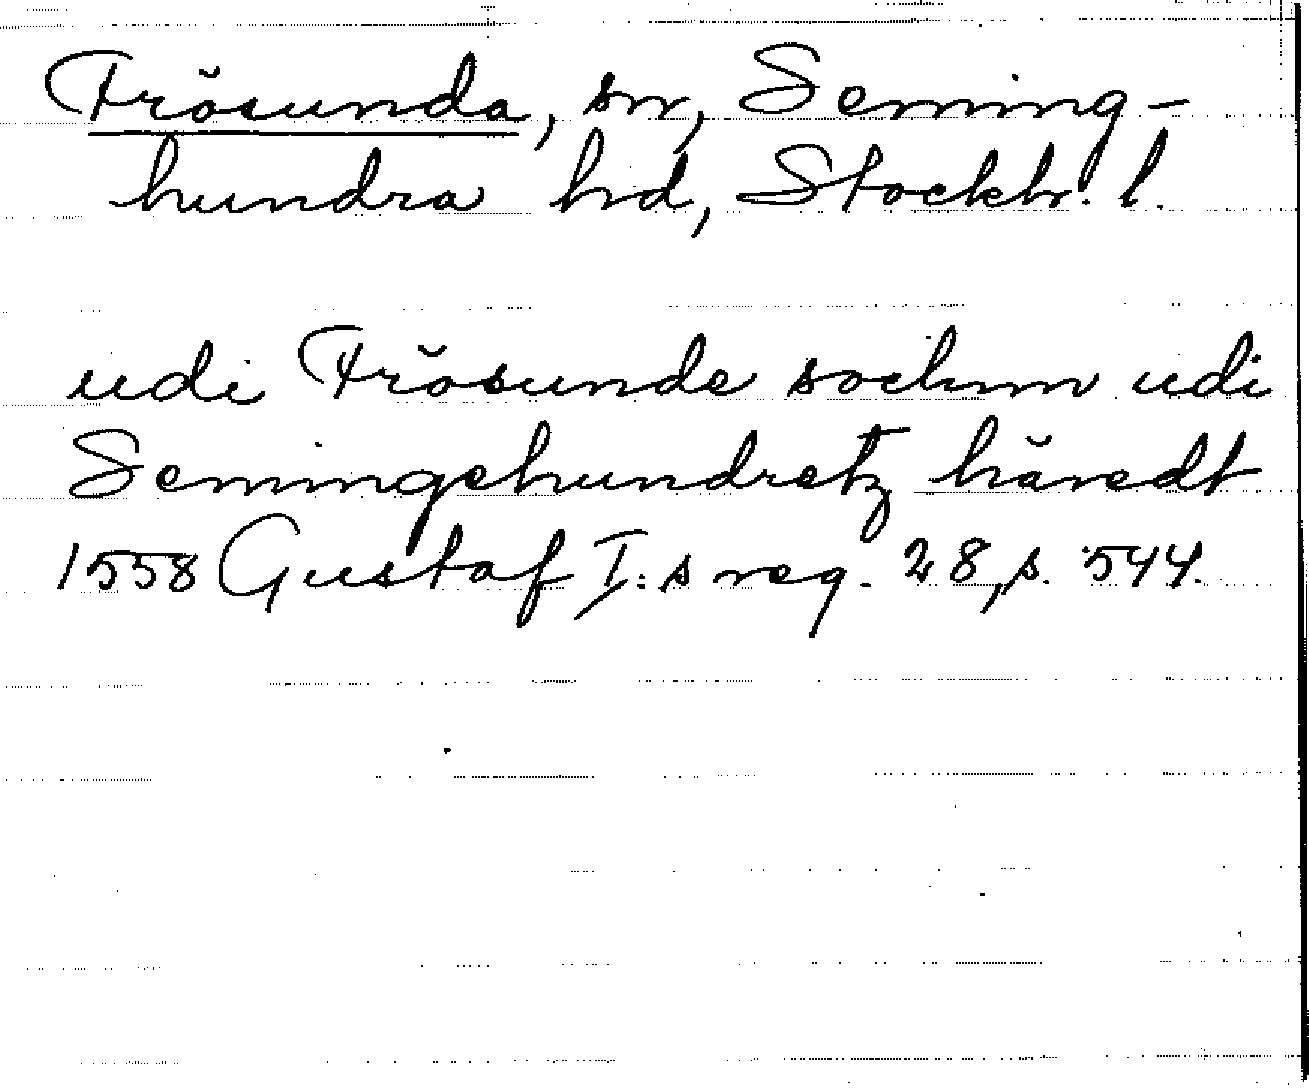 Frösunda, sn, Seming-
hundra hd, Stockh. l.
udi Frösunde sochnn udi
Semingehundretz häredt
1558 Gustaf I:s reg. 28, s. 544.